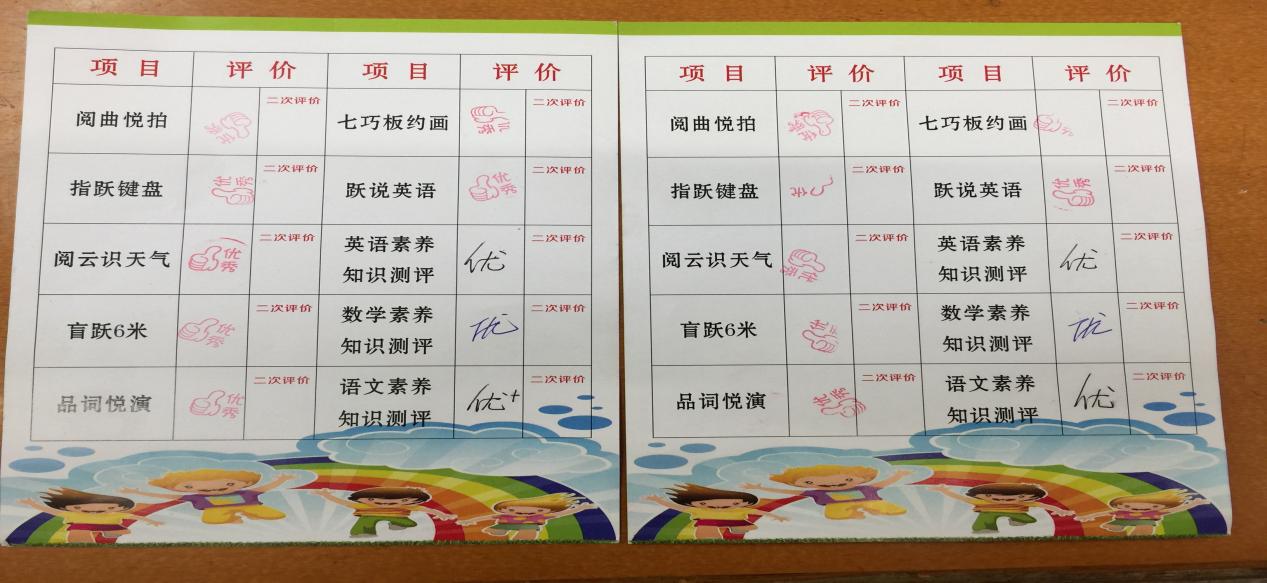 项目 评价 项目 评价
阅曲悦拍 优秀 二次评价 七巧板约画 优秀 二次评价
指跃键盘 优秀 二次评价 跃说英语 优秀 二次评价
阅云识天气 优秀 二次评价 英语素养 优 二次评价
知识测评
盲跃6米 优秀 二次评价 数学素养 优 二次评价
知识测评
品词悦演 优秀 二次评价 语文素养 优+ 二次评价
知识测评
项目 评价 项目 评价
阅曲悦拍 优秀 二次评价 七巧板约画 二次评价
指跃键盘 优 二次评价 跃说英语 优秀 二次评价
阅云识天气 优秀 二次评价 英语素养 优 二次评价
知识测评
盲跃6米 优秀 二次评价 数学素养 优 二次评价
知识测评
品词悦演 优秀 二次评价 语文素养 优 二次评价
知识测评